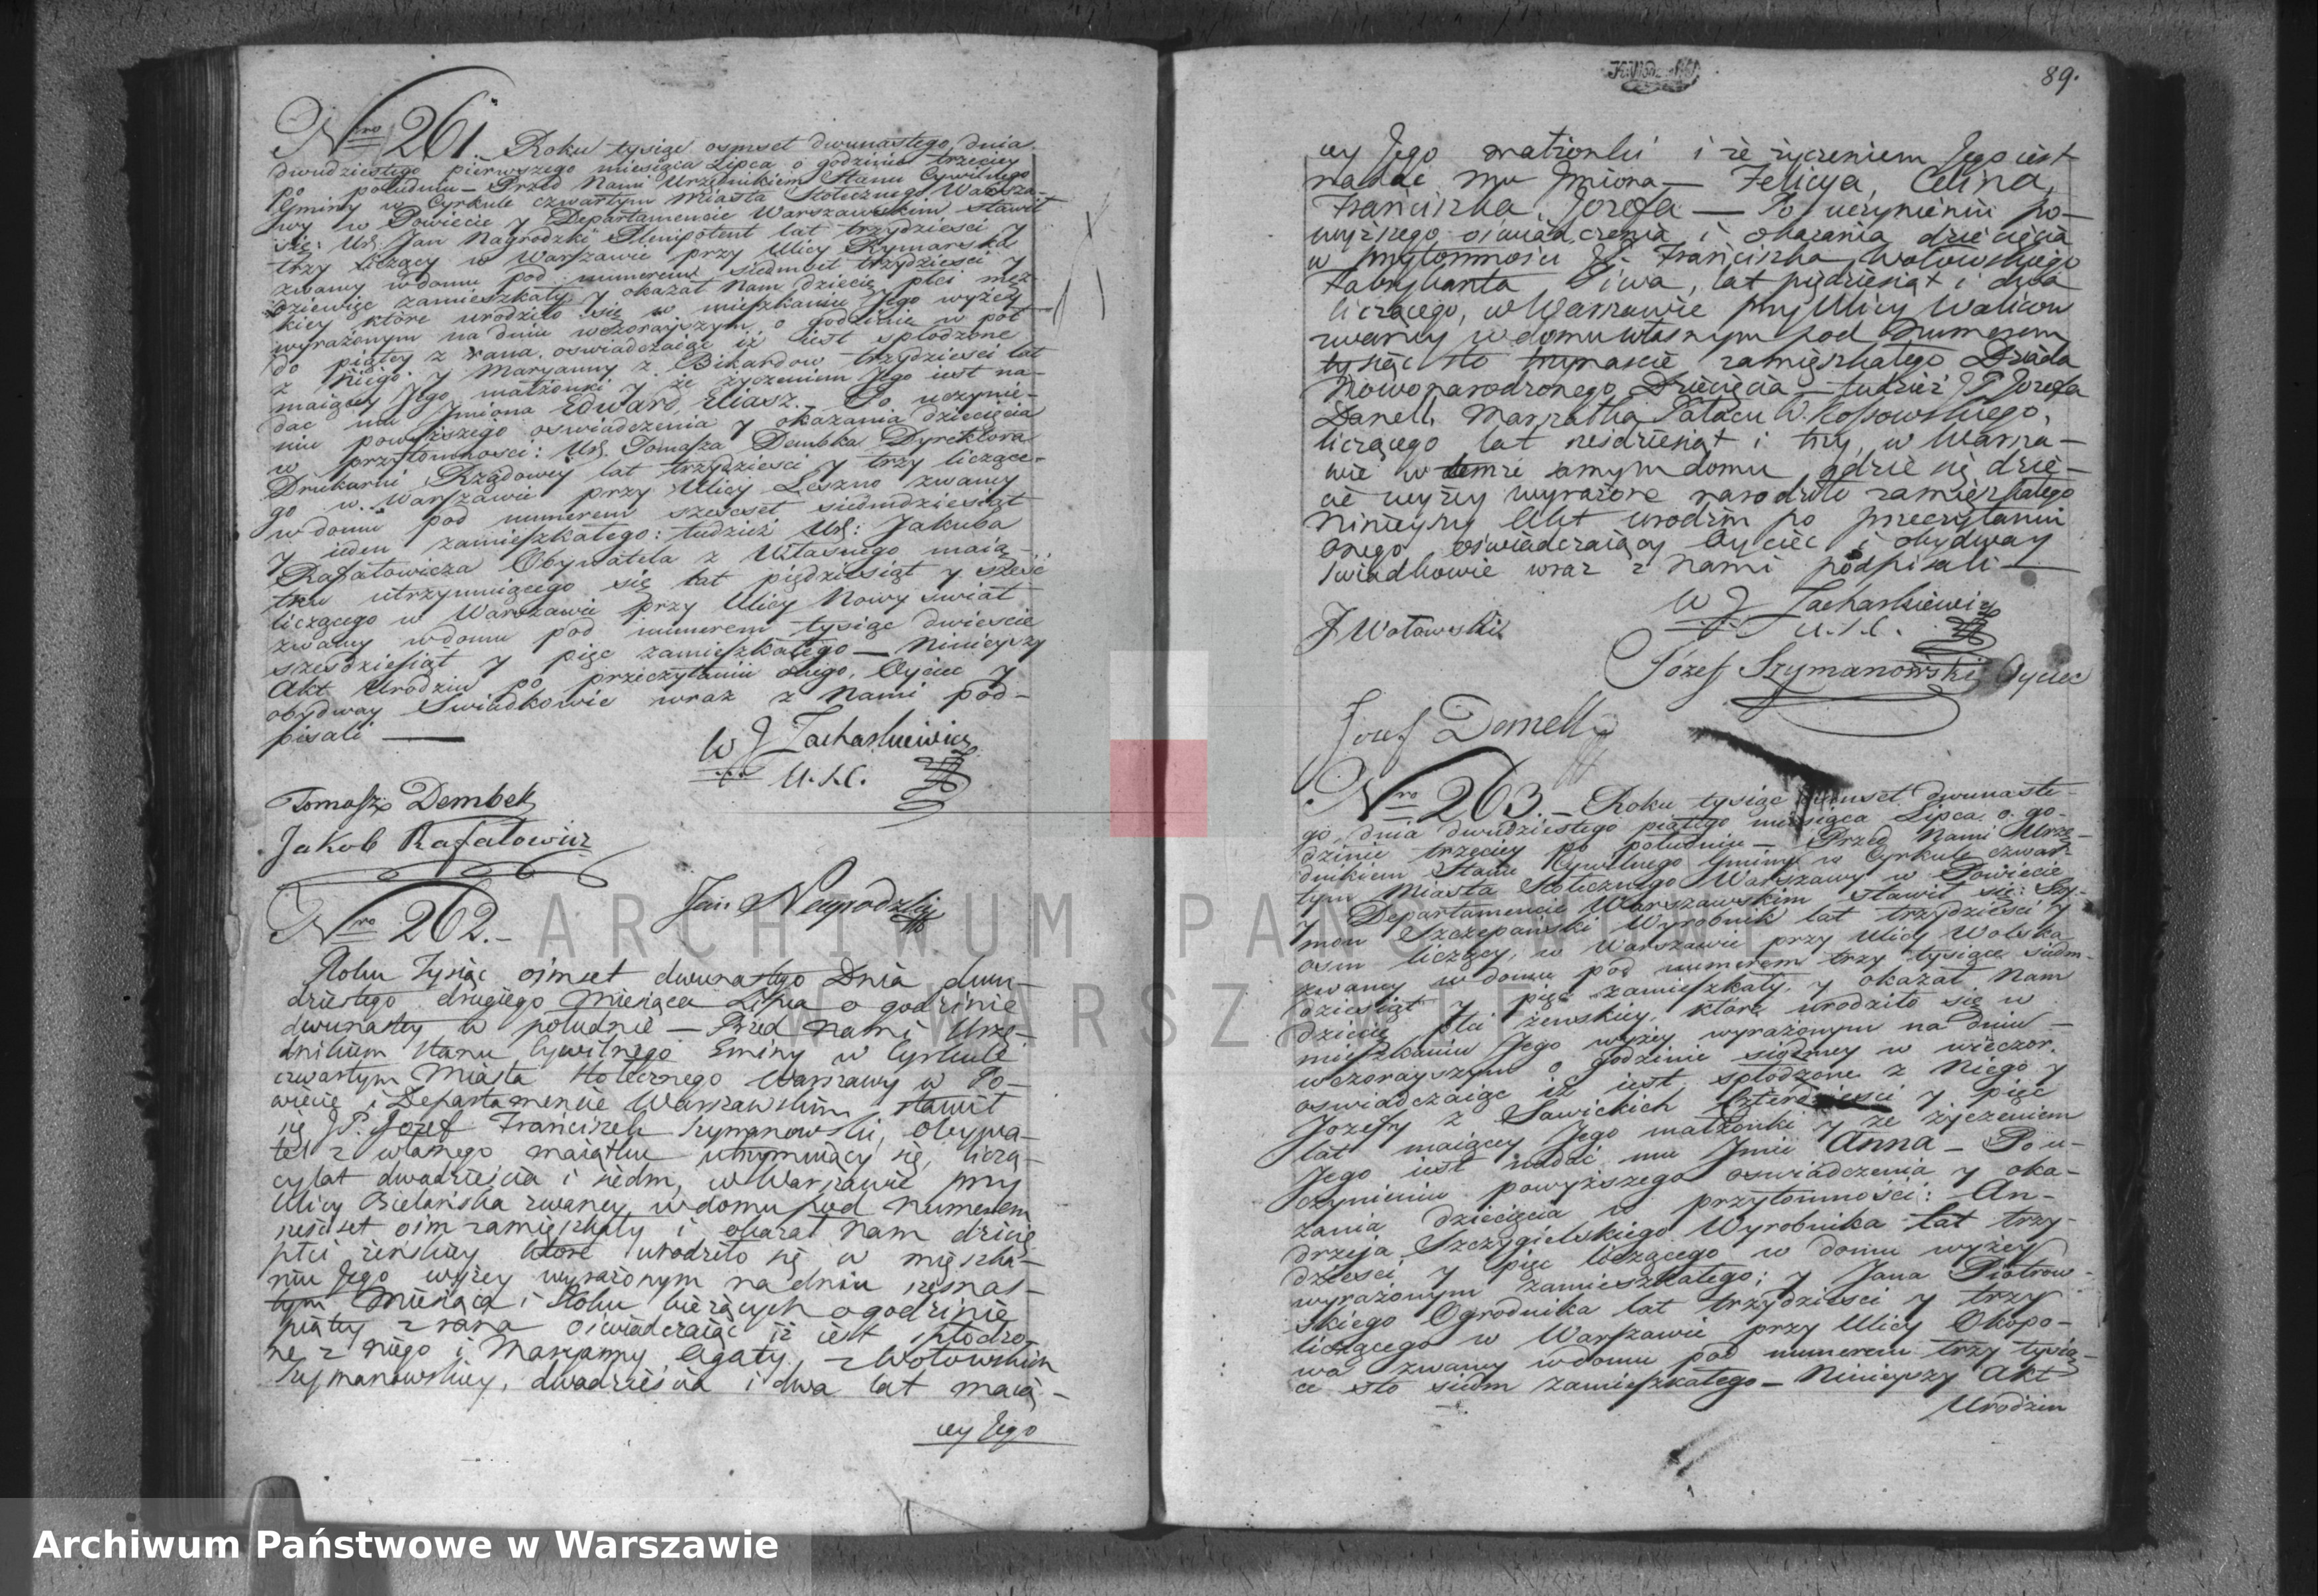 Nro 261. Roku tysiąc osmset dwunastego, dnia
dwudziestego pierwszego miesiąca Lipca o godzinie trzeciey
po południu – Przed Nami Urzędnikiem Stanu Cywilnego
Gminy w Cyrkule czwartym Miasta Stołecznego Warsza-
wy w Powiecie y Departamencie Warszawskim stawił
się: Ur. Jan Nagrodzki Plenipotent lat trzydziesci y
trzy liczący w Warszawie przy Ulicy Rymarska
zwaney w domu pod numerem siedmset trzydziesci y
dziewięc zamieszkały y okazał Nam dziecię płci męz-
kiey które urodziło się w mieszkaniu Jego wyżey
wyrażonym na dniu wczorayszym o godzinie w pół
do piątey z rana, oswiadczaiąc iż iest spłodzone
z Niego y Maryanny z Bikardow trzydziesci lat
maiącey Jego małżonki y że życzeniem Jego iest na-
dac mu Jmiona Edward, Eliasz. – Po uczynie-
niu powyższego oswiadczenia y okazania dziecięcia
w przytomnosci: Ur. Tomasza Dembka Dyrektora
Drukarni Rządowey lat trzydziesci y trzy liczące-
go w Warszawie przy Ulicy Leszno zwaney
w domu pod numerem szescset siedmdziesiąt
y ieden zamieszkałego: tudzież Ur: Jakuba
Rafałowicza Obywatela z Własnego maią-
tku utrzymuiącego się lat pięćdziesiąt y szesć
liczącego w Warszawie przy Ulicy Nowy Swiat
zwaney w domu pod numerem tysiąc dwiescie
szescdziesiąt y pięc zamieszkałego – Ninieyszy
Akt Urodzin po przeczytaniu onego, Oyciec y
obydway Swiadkowie wraz z Nami pod-
pisali –
W J Zacharkiewicz
U. S. C.
Tomasz Dembek
Jakob Rafałowicz
Jan Nagrodzki
Nro 262. –
Roku Tysiąc ośmset dwunastego Dnia dwu-
dziestego drugiego Miesiąca Lipca o godzinie
dwunastey w południe – Przed nami Urzę-
dnikiem Stanu Cywilnego Gminy w Cyrkule
czwartym Miasta Stołecznego Warszawy w Po-
wiecie i Departamencie Warszawskim, stawił
się J P. Jozef Franciszek Szymanowski, Obywa-
tel z własnego maiątku utrzymuiący się, liczą-
cy lat dwadzieścia i siedm, w Warszawie przy
Ulicy Bielańska zwaney w domu pod Numerem
sześćset ośm zamieszkały i okazał Nam dziecię
płci żenskiey które urodziło się w mięszka-
niu Jego wyżey wyrażonym na dniu szesnas-
tym Miesiąca i Roku bieżących o godzinie
piątey z rana oświadczaiąc iż iest spłodzo-
ne z niego i Maryanny Agaty, z Wołowskich
Szymanowskiey, dwadzieścia i dwa lat maią-
cey Jego
89.
cey Jego małżonki i że życzeniem Jego iest
nadać mu Jmiona – Felicya, Celina,
Franciszka, Jozefa – Po uczynieniu po-
wyższego oświadczenia i okazania dziecięcia
w przytomności J. P. Franciszka Wołowskiego
Fabrykanta Piwa, lat pięćdziesiąt i dwa
liczącego, w Warszawie przy Ulicy Walicow
zwaney w domu własnym pod Numerem
tysiąc sto trzynaście zamięszkałego Dziada
Nowonarodzonego Dziecięcia – tudzież J P. Jozefa
Danell, Marszałka Pałacu W. Kossowskiego,
liczącego lat sześdziesiąt i trzy, w Warsza-
wie w temże samym domu, gdzie się dzie-
cie wyżey wyrażone narodziło zamięszkałego
Ninieyszy Akt urodzin po przeczytaniu
onego oświadczaiący Oyciec i obydway
Swiadkowie wraz z Nami podpisali –
W J Zacharkiewicz
U. S. C.
F Wołowski
Józef Szymanowski Oyciec
Jozef Danell
Nro 263. – Roku tysiąc osmset dwunaste-
go dnia dwudziestego piątego miesiąca Lipca o go-
dzinie trzeciey po południu – Przed Nami Urzę-
dnikiem Stanu Cywilnego Gminy w Cyrkule czwar-
tym Miasta Stołecznego Warszawy w Powiecie
y Departamencie Warszawskim stawił się: Szy-
mon Szczepański Wyrobnik lat trzydziesci y
osm liczący, w Warszawie przy Ulicy Wolska
zwaney w domu pod numerem trzy tysiące siedm-
dziesiąt y pięc zamieszkały, y okazał Nam
dziecię płci żenskiey, które urodziło się w
mieszkaniu Jego wyżey wyrażonym na dniu
wczorayszym o godzinie siodmey w wieczor,
oswiadczaiąc iż iest spłodzone z Niego y
Jozefy z Sawickich czterdziesci y pięc
lat maiącey Jego małżonki y że życzeniem
Jego iest nadać mu Jmie Anna – Po u-
czynieniu powyższego oswiadczenia y oka-
zania dziecięcia w przytomności: An-
drzeja Szczygielskiego Wyrobnika lat trzy-
dziesci y pięc liczącego w domu wyżey
wyrażonym zamieszkałego; y Jana Piotrow-
skiego Ogrodnika lat trzydziesci y trzy
liczącego w Warszawie przy Ulicy Okopo-
wa zwaney w domu pod numerem trzy tysią-
ce sto siedm zamieszkałego – Ninieyszy Akt
Urodzin
ARCHIWUM PAŃSTWOWE
W WARSZAWIE
Archiwum Państwowe w Warszawie